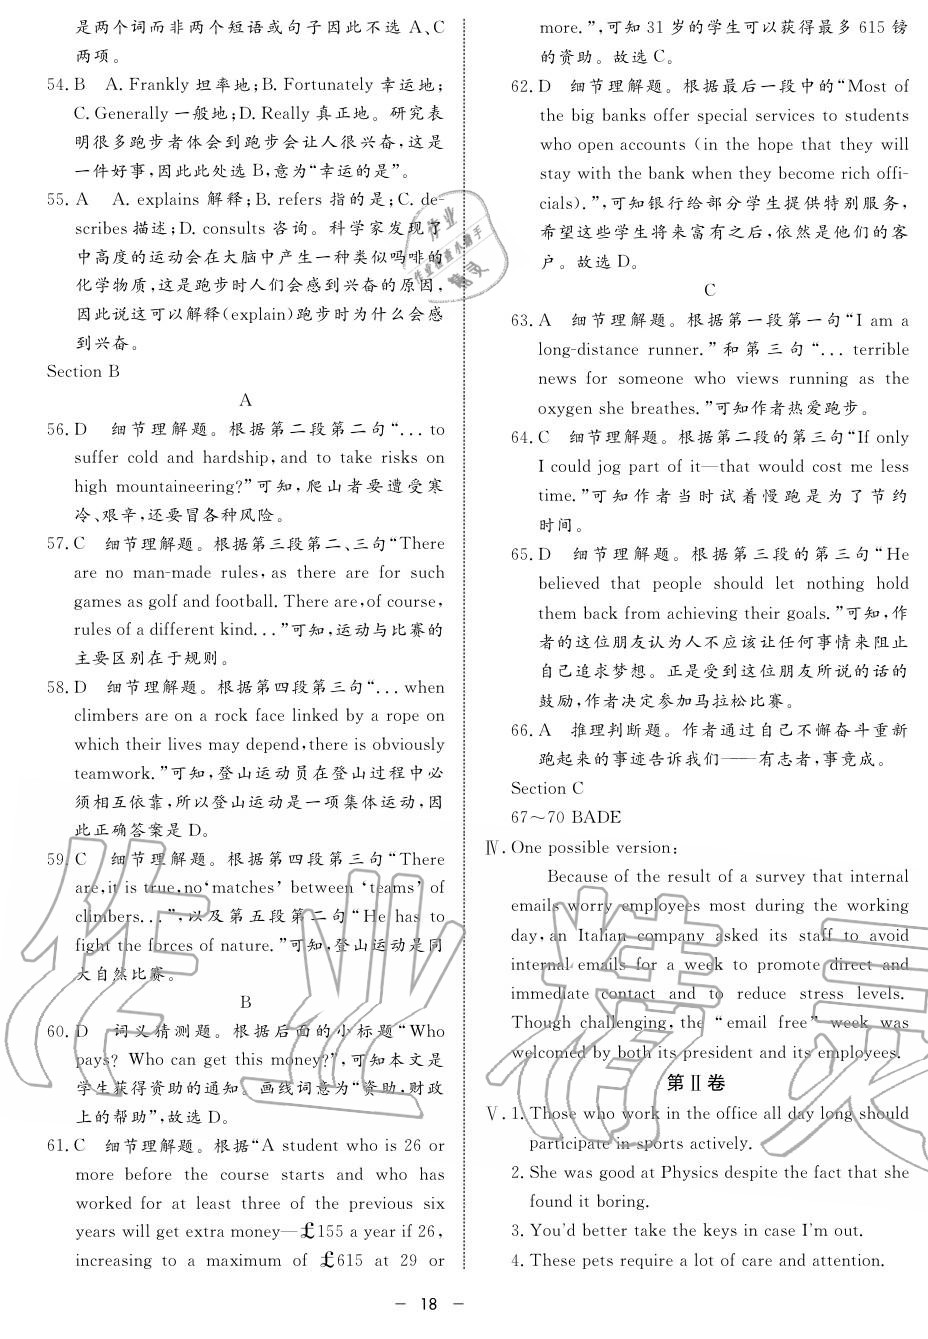 是两个词而非两个短语或句子因此不选 A、C
两项。
54. B　A. Frankly 坦率地;B. Fortunately 幸运地;
C. Generally 一般地;D. Really 真正地。研究表
明很多跑步者体会到跑步会让人很兴奋,这是
一件好事,因此此处选 B,意为“幸运的是”。
55. A　A. explains 解释;B. refers 指的是;C. de-
scribes 描述;D. consults 咨询。科学家发现了
中高度的运动会在大脑中产生一种类似吗啡的
化学物质,这是跑步时人们会感到兴奋的原因,
因此说这可以解释(explain)跑步时为什么会感
到兴奋。
Section B
A
56. D　细节理解题。根据第二段第二句“... to
suffer cold and hardship, and to take risks on
high mountaineering?”可知,爬山者要遭受寒
冷、艰辛,还要冒各种风险。
57. C　细节理解题。根据第三段第二、三句“There
are no man-made rules, as there are for such
games as golf and football. There are, of course,
rules of a different kind...”可知,运动与比赛的
主要区别在于规则。
58. D　细节理解题。根据第四段第三句“... when
climbers are on a rock face linked by a rope on
which their lives may depend, there is obviously
teamwork.”可知,登山运动员在登山过程中必
须相互依靠,所以登山运动是一项集体运动,因
此正确答案是 D。
59. C　细节理解题。根据第四段第三句“There
are, it is true, no‘matches’ between ‘teams’ of
climbers...”,以及第五段第二句“He has to
fight the forces of nature.”可知,登山运动是同
大自然比赛。
B
60. D　词义猜测题。根据后面的小标题“Who
pays? Who can get this money?”,可知本文是
学生获得资助的通知。画线词意为“资助,财政
上的帮助”,故选 D。
61. C　细节理解题。根据“A student who is 26 or
more before the course starts and who has
worked for at least three of the previous six
years will get extra money—£155 a year if 26,
increasing to a maximum of £615 at 29 or
more.”,可知 31 岁的学生可以获得最多 615 镑
的资助。故选 C。
62. D　细节理解题。根据最后一段中的“Most of
the big banks offer special services to students
who open accounts (in the hope that they will
stay with the bank when they become rich offi-
cials).”,可知银行给部分学生提供特别服务,
希望这些学生将来富有之后,依然是他们的客
户。故选 D。
C
63. A　细节理解题。根据第一段第一句“I am a
long-distance runner.”和第三句“... terrible
news for someone who views running as the
oxygen she breathes.”可知作者热爱跑步。
64. C　细节理解题。根据第二段的第三句“If only
I could jog part of it—that would cost me less
time.”可知作者当时试着慢跑是为了节约
时间。
65. D　细节理解题。根据第三段的第三句“He
believed that people should let nothing hold
them back from achieving their goals.”可知,作
者的这位朋友认为人不应该让任何事情来阻止
自己追求梦想。正是受到这位朋友所说的话的
鼓励,作者决定参加马拉松比赛。
66. A　推理判断题。作者通过自己不懈奋斗重新
跑起来的事迹告诉我们——有志者,事竟成。
Section C
67～70 BADE
Ⅳ. One possible version:
Because of the result of a survey that internal
emails worry employees most during the working
day, an Italian company asked its staff to avoid
internal emails for a week to promote direct and
immediate contact and to reduce stress levels.
Though challenging, the “email free” week was
welcomed by both its president and its employees.
第Ⅱ卷
Ⅴ. 1. Those who work in the office all day long should
participate in sports actively.
2. She was good at Physics despite the fact that she
found it boring.
3. You'd better take the keys in case I'm out.
4. These pets require a lot of care and attention.
— 18 —
作业精灵